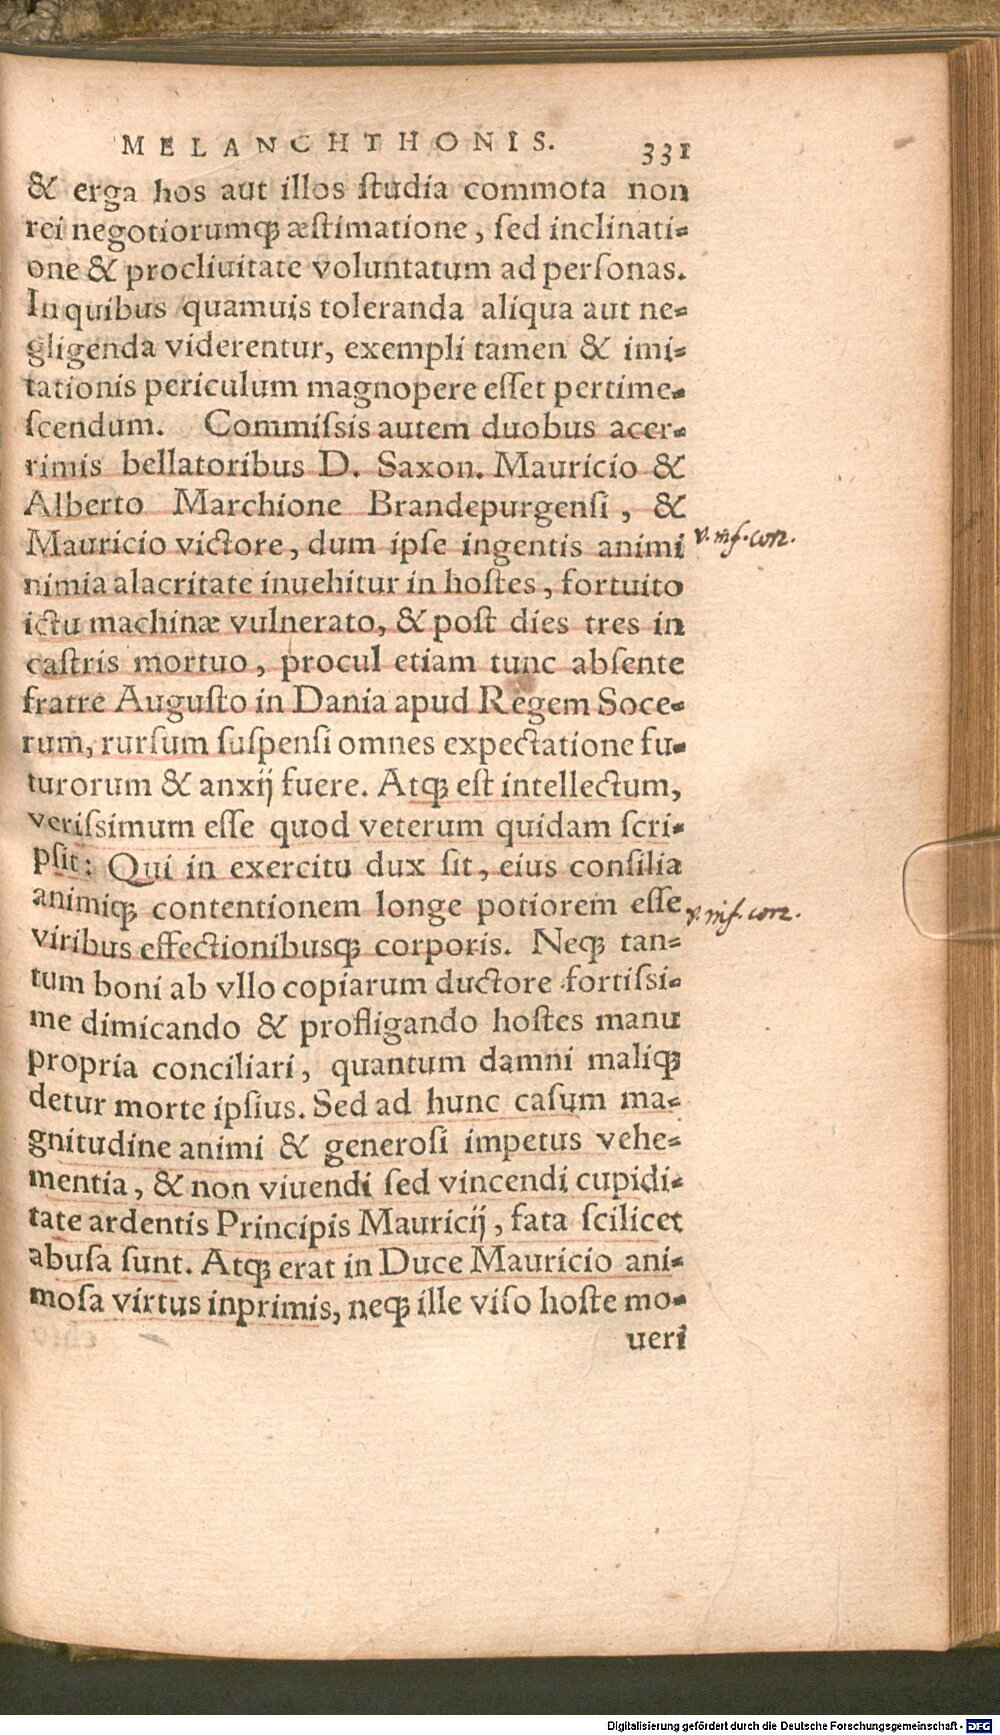 MELANCHTHONIS. 331
& erga hos aut illos ſtudia commota non
rei negotiorumq́ꝫ æſtimatione, ſed inclinati-
one & procliuitate voluntatum ad perſonas.
In quibus quamuis toleranda aliqua aut ne-
gligenda viderentur, exempli tamen & imi-
tationis periculum magnopere eſſet pertime-
ſcendum. Commiſsis autem duobus acer-
rimis bellatoribus D. Saxon. Mauricio &
Alberto Marchione Brandepurgenſi, &
Mauricio victore, dum ipſe ingentis animi v. inf. corr.
nimia alacritate inuehitur in hoſtes, fortuito
ictu machinæ vulnerato, & poſt dies tres in
caſtris mortuo, procul etiam tunc abſente
fratre Auguſto in Dania apud Regem Soce-
rum, rurſum ſuſpenſi omnes expectatione fu-
turorum & anxij fuere. Atqꝫ eſt intellectum,
veriſsimum eſſe quod veterum quidam ſcri-
pſit: Qui in exercitu dux ſit, eius conſilia
animiqꝫ contentionem longe potiorem eſſe v. inf. corr.
viribus effectionibusqꝫ corporis. Neqꝫ tan-
tum boni ab vllo copiarum ductore fortiſsi-
me dimicando & profligando hoſtes manu
propria conciliari, quantum damni maliqꝫ
detur morte ipſius. Sed ad hunc caſum ma-
gnitudine animi & generoſi impetus vehe-
mentia, & non viuendi ſed vincendi cupidi-
tate ardentis Principis Mauricij, fata ſcilicet
abuſa ſunt. Atqꝫ erat in Duce Mauricio ani-
moſa virtus inprimis, neqꝫ ille viſo hoſte mo-
ueri
Digitalisierung gefördert durch die Deutsche Forschungsgemeinschaft - DFG